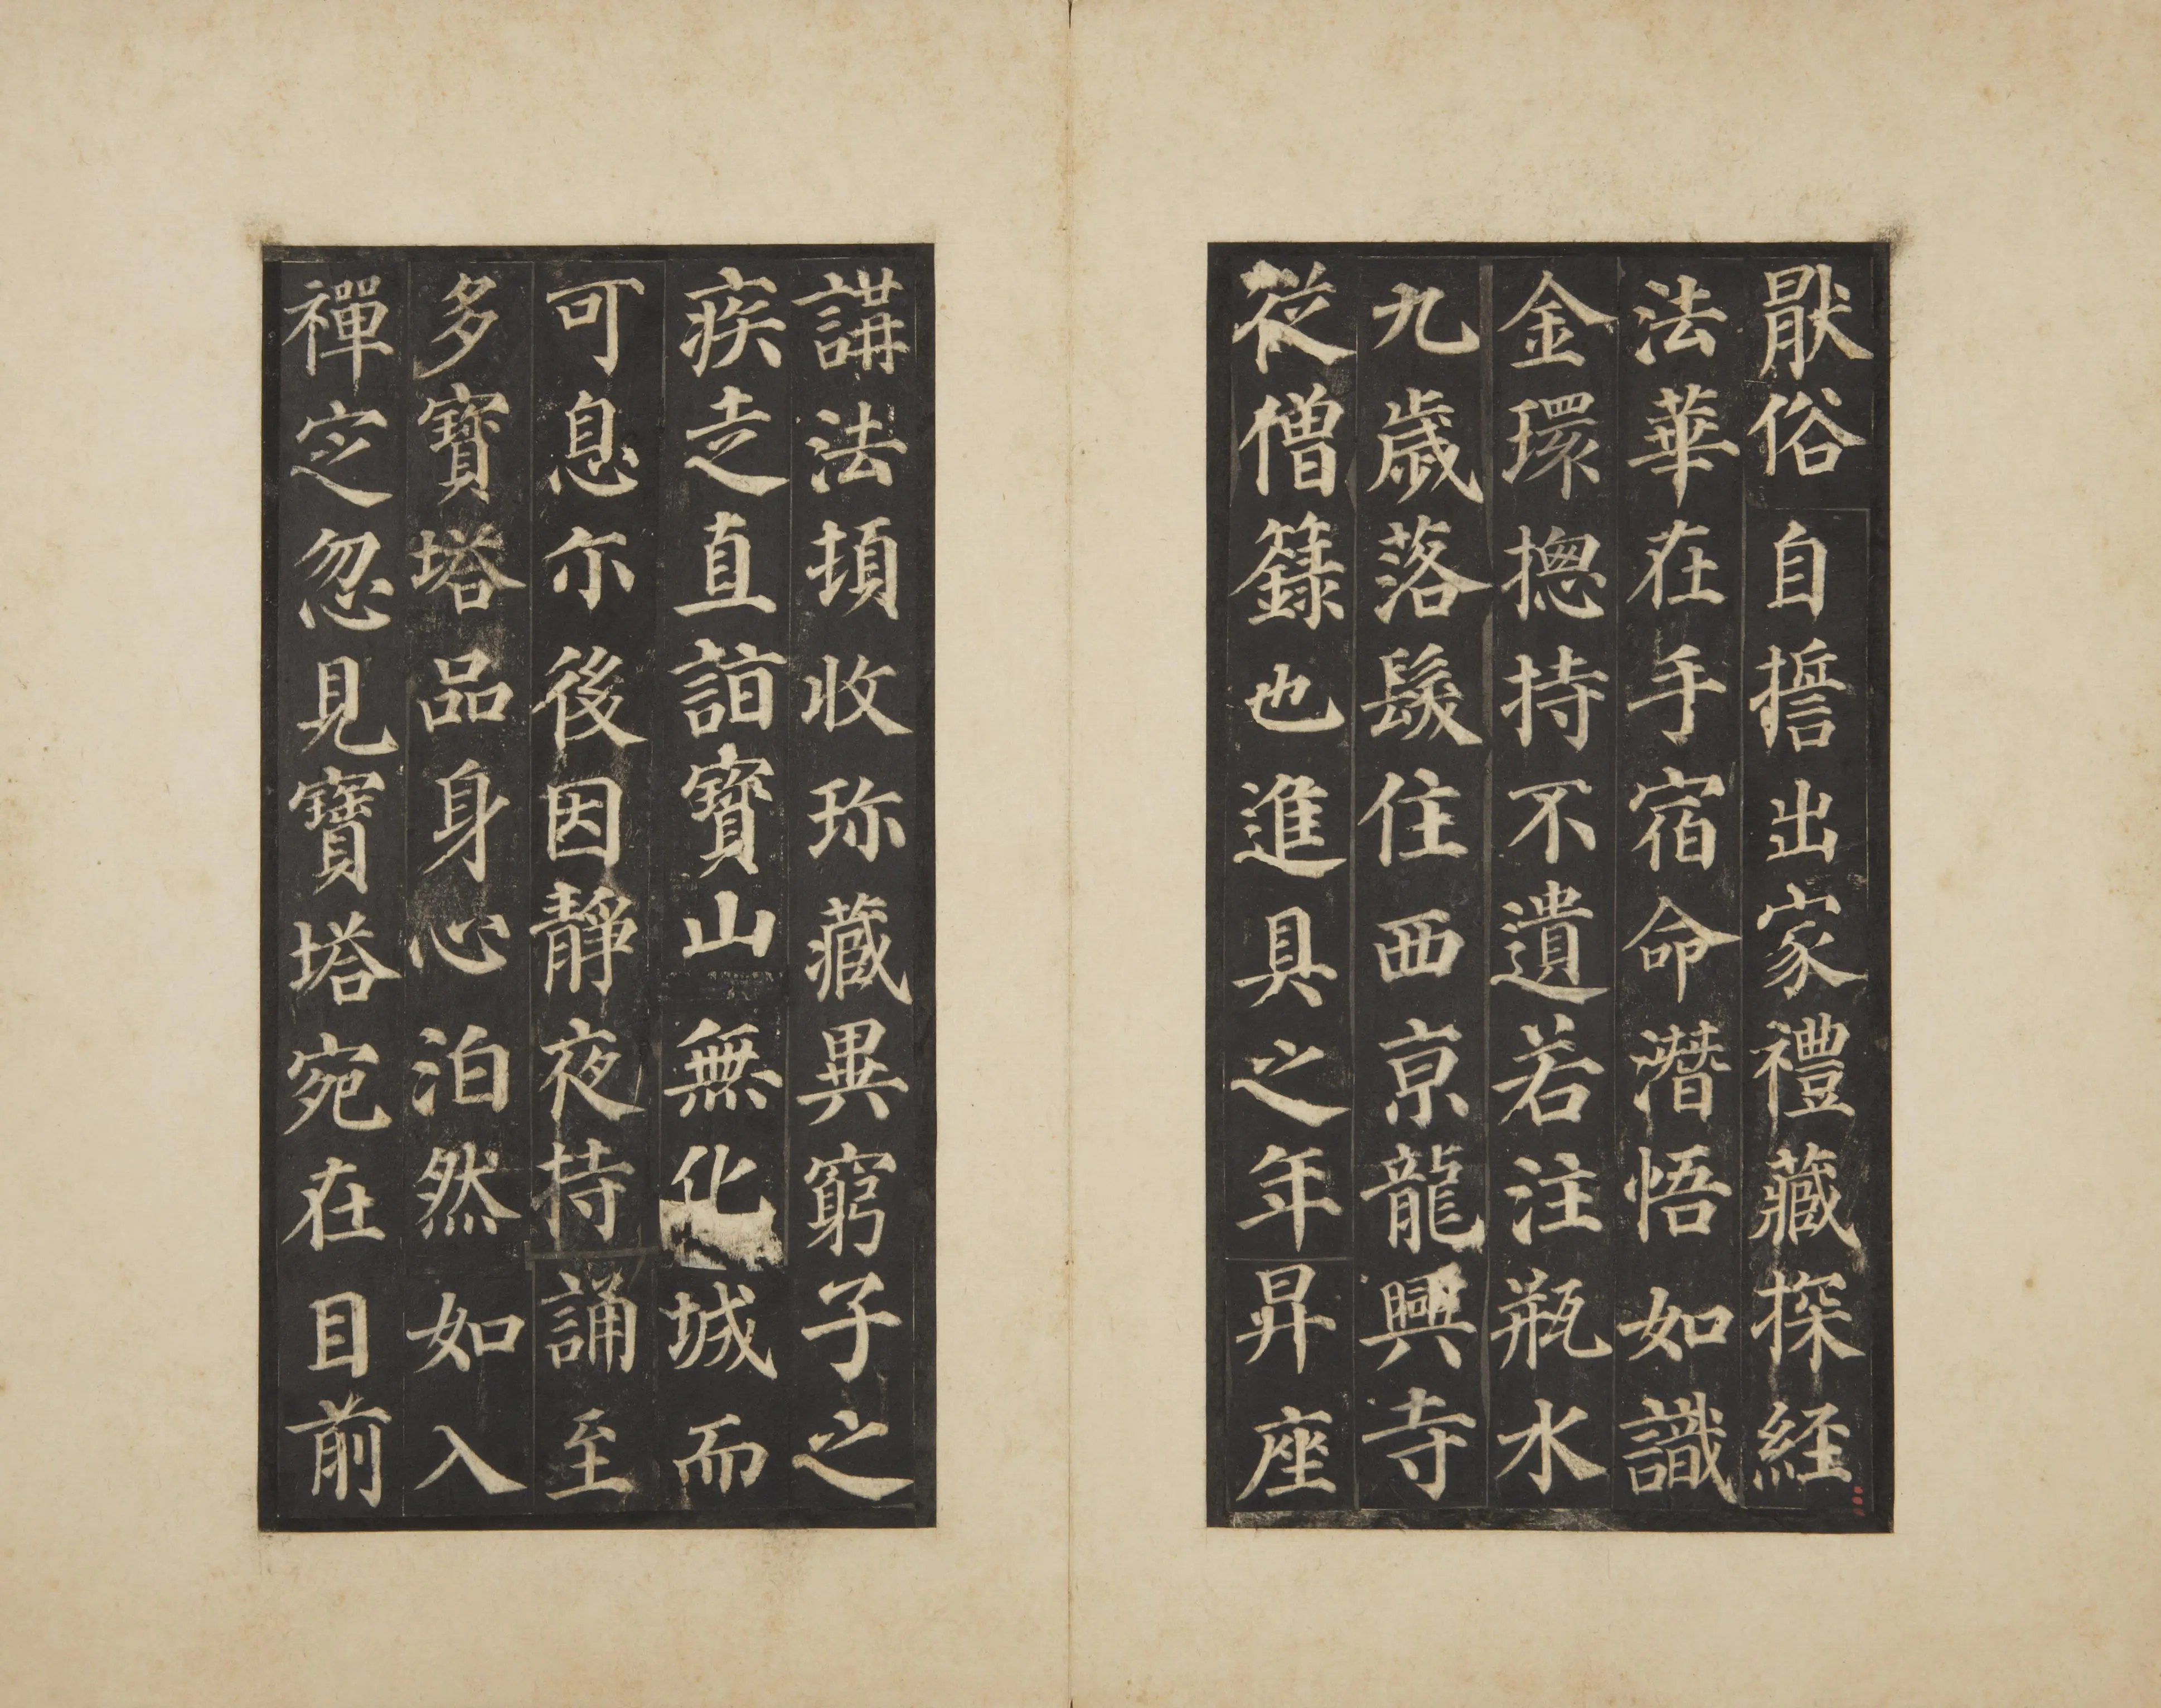 猒俗自誓出家禮藏探経
法華在手宿命潛悟如識
金環揔持不遺若注瓶水
九歲落髮住西京龍興寺
從僧籙也進具之年昇座
講法頓收珎藏異窮子之
疾走直詣寶山無化城而
可息尒後因靜夜持誦至
多寶塔品身心泊然如入
禪定忽見寶塔宛在目前